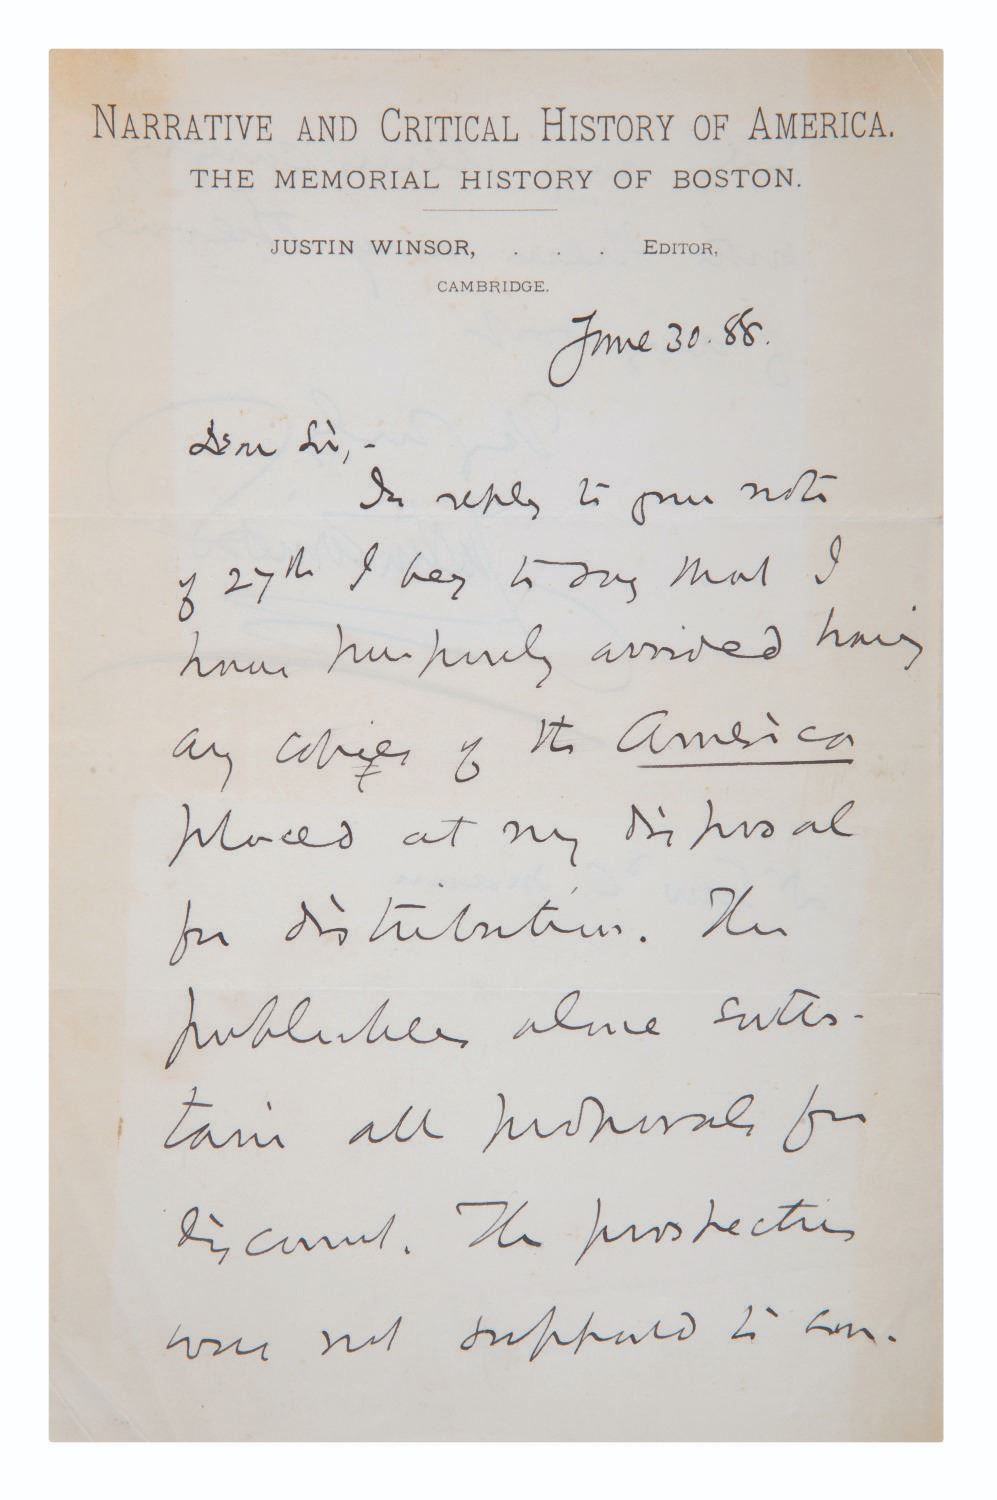 NARRATIVE AND CRITICAL HISTORY OF AMERICA.
THE MEMORIAL HISTORY OF BOSTON.
JUSTIN WINSOR, . . . EDITOR,
CAMBRIDGE.
June 30. 88.
Dear Sir, -
In reply to your note
of 27th I beg to say that I
have purposely avoided having
any copies of the America
placed at my disposal
for distribution. The
publishers alone
all proposals for
discount. The prospectus
was not supposed to con-